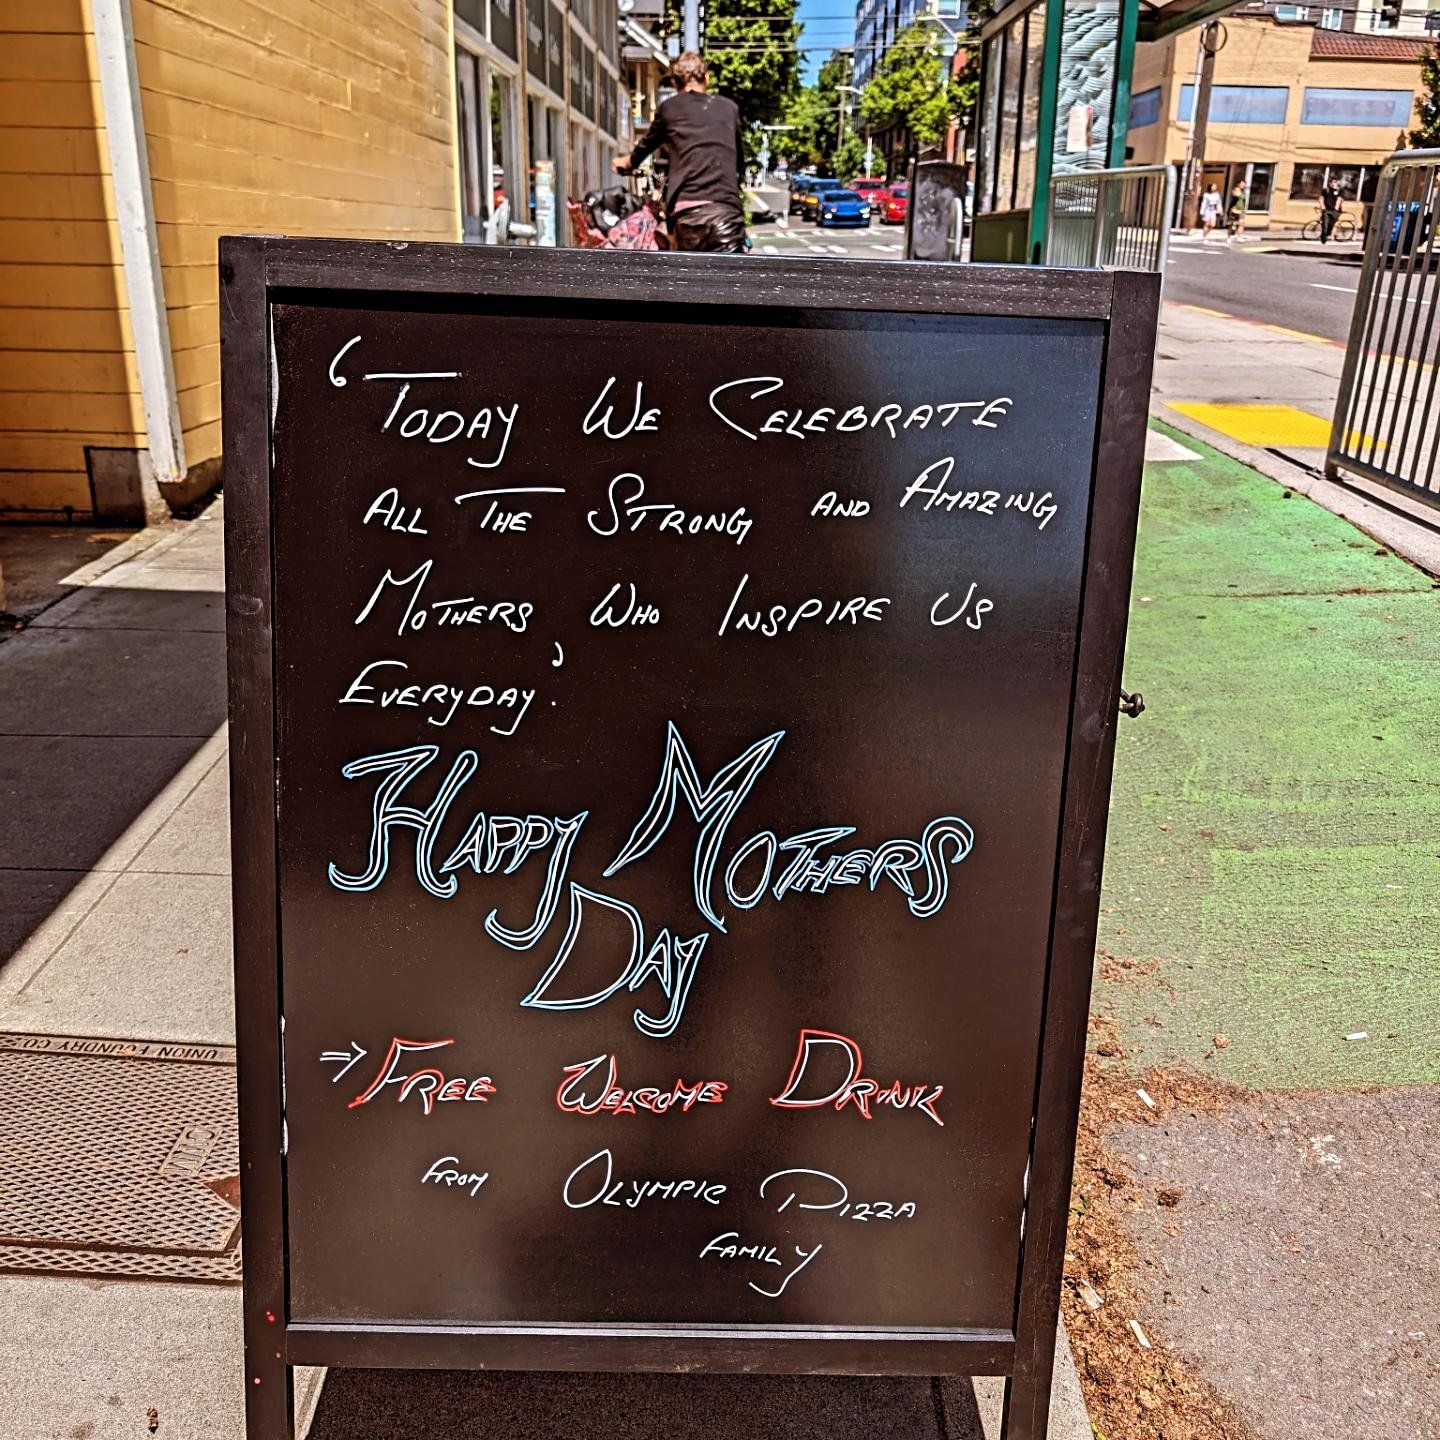 ‘Today We Celebrate
All The Strong and Amazing
Mothers Who Inspire Us
Everyday.’
Happy Mothers
Day
⇒ Free Welcome Drink
from Olympic Pizza
Family
UNION FOUNDRY CO.